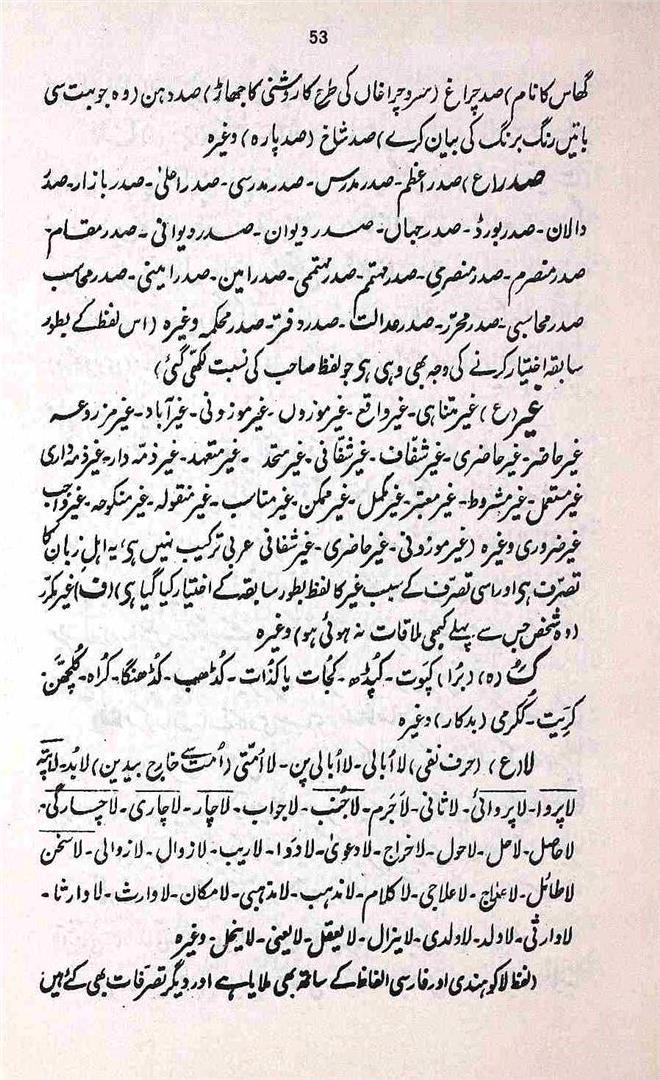 53
گھاس کا نام) صد چراغ (سرو چراغاں کی طرح کا روشنی کا جھاڑ) صد دہن (وہ جو بہت سی
باتیں رنگ برنگ کی بیان کرے) صد شاخ (صد پارہ) وغیرہ
صدر (ع) صدر اعظم۔ صدر مدرس۔ صدر مدرسی۔ صدر اعلیٰ۔ صدر بازار۔ صدر
دالان۔ صدر بورڈ۔ صدر جہاں۔ صدر دیوان۔ صدر دیوانی۔ صدر مقام۔
صدر منصرم۔ صدر منصری۔ صدر مہتمم۔ صدر مہتممی۔ صدر امین۔ صدر امینی۔ صدر محاسب
صدر محاسبی۔ صدر محرّر۔ صدر عدالت۔ صدر دفتر۔ صدر محکمہ وغیرہ (اس لفظ کے بطور
سابقہ اختیار کرنے کی وجہ بھی وہی ہی جو لفظ صاحب کی نسبت لکھی گئی)
غیر (ع) غیر متناہی۔ غیر واقع۔ غیر موزوں۔ غیر موزونی۔ غیر آباد۔ غیر مزروعہ
غیر حاضر۔ غیر حاضری۔ غیر شفّاف۔ غیر شفّافی۔ غیر متحد۔ غیر متعہد۔ غیر ذمّہ دار۔ غیر ذمّہ داری
غیر مستقل۔ غیر مشروط۔ غیر معتبر۔ غیر مکمل۔ غیر ممکن۔ غیر مناسب۔ غیر منقولہ۔ غیر منکوحہ۔ غیر واجب
غیر ضروری وغیرہ (غیر موزونی۔ غیر حاضری۔ غیر شفافی عربی ترکیب نہیں ہی، یہ اہل زبان کا
تصرّف ہی اور اسی تصرّف کے سبب غیر کا لفظ بطور سابقہ کے اختیار کیا گیا ہی) (ف) غیر مکرّر
(وہ شخص جس سے پہلے کبھی ملاقات نہ ہوئی ہو) وغیرہ
کُ (ہ) (بُرا) کپوت۔ کپڈھ۔ کجات یا کذات۔ کڈھب۔ کڈھنگا۔ کراہ۔ کلچھن
کریت۔ ککرمی (بدکار) وغیرہ
لا (ع) (حرف نفی) لا اُبالی۔ لا اُبالی پن۔ لا اُمّتی (اُمت سے خارج بیدین) لا بُد۔ لاپتہ
لاپروا۔ لاپروائی۔ لاثانی۔ لاجَرم۔ لاجُنب۔ لاجواب۔ لاچار۔ لاچاری۔ لاچارگی۔
لاحاصل۔ لاحل۔ لاحول۔ لاخراج۔ لادعویٰ۔ لادوا۔ لاریب۔ لازوال۔ لازوالی۔ لاسخن
لاطائل۔ لاعلاج۔ لاعلاجی۔ لاکلام۔ لامذہب۔ لامذہبی۔ لامکان۔ لاوارث۔ لاوارثا۔
لاوارثی۔ لاولد۔ لاولدی۔ لایزال۔ لایعقل۔ لایعنی۔ لاینحل۔ وغیرہ
(لفظ لا کو ہندی اور فارسی الفاظ کے ساتھ بھی ملایا ہے اور دیگر تصرّفات بھی کئے ہیں